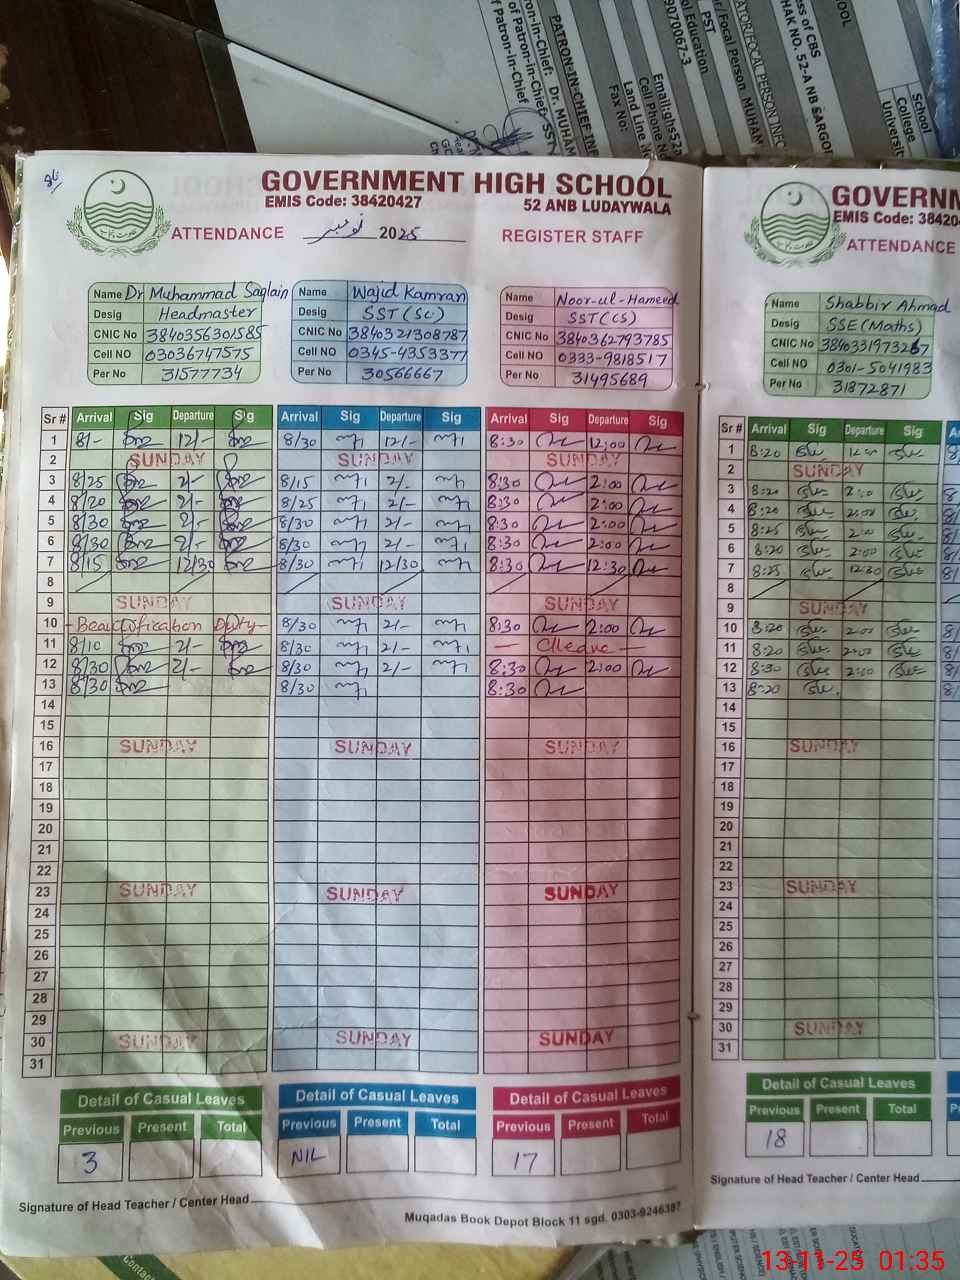 SCHOOL
ess of CBS
HAK NO. 52-A NB SARGOD
School
College
Universit
ATOR/FOCAL PERSON INFO
r/Focal Person: MUHAM
PST
ol Education
9070067-3
Email:ghs52a
Cell Phone No
Land Line
Fax No:
PATRON-IN-CHIEF INF
tron-in-Chief: Dr. MUHAM
of Patron-in-Chief: SST
f Patron-in-Chief
GOVERNMENT HIGH SCHOOL
EMIS Code: 38420427 52 ANB LUDAYWALA
ATTENDANCE نومبر 2025 REGISTER STAFF
Name Dr Muhammad Saqlain
Desig Headmaster
CNIC No 3840356301585
Cell NO 03036747575
Per No 31577734
Name Wajid Kamran
Desig SST (Sc)
CNIC No 3840321308787
Cell NO 0345-4353377
Per No 30566667
Name Noor-ul-Hameed
Desig SST (CS)
CNIC No 3840362793785
Cell NO 0333-9818517
Per No 31495689
Sr # Arrival Sig Departure Sig Arrival Sig Departure Sig Arrival Sig Departure Sig
1 8/- 12/- 8/30 12/- 8:30 12:00
2 SUNDAY SUNDAY SUNDAY
3 8/25 2/- 8/15 2/- 8:30 2:00
4 8/20 2/- 8/25 2/- 8:30 2:00
5 8/30 2/- 8/30 2/- 8:30 2:00
6 8/30 2/- 8/30 2/- 8:30 2:00
7 8/15 12/30 8/30 12/30 8:30 12:30
8
9 SUNDAY SUNDAY SUNDAY
10 -Beautification Duty- 8/30 2/- 8:30 2:00
11 8/10 2/- 8/30 2/-
12 8/30 2/- 8/30 2/- 8:30 2:00
13 8/30 8/30 8:30
14
15
16 SUNDAY SUNDAY SUNDAY
17
18
19
20
21
22
23 SUNDAY SUNDAY SUNDAY
24
25
26
27
28
29
30 SUNDAY SUNDAY SUNDAY
31
Detail of Casual Leaves Detail of Casual Leaves Detail of Casual Leaves
Previous Present Total Previous Present Total Previous Present Total
3 NIL 17
Signature of Head Teacher / Center Head
Muqadas Book Depot Block 11 sgd. 0303-9246387
GOVERNM
EMIS Code: 384204
ATTENDANCE
Name Shabbir Ahmad
Desig SSE (Maths)
CNIC No 3840331973267
Cell NO 0301-5041983
Per No 31872871
Sr # Arrival Sig Departure Sig
1 8:20
2 SUNDAY
3 8:20 2:00
4 8:20 2:00
5 8:25 2:00
6 8:20 2:00
7 8:25 12:30
8
9 SUNDAY
10 8:20 2:00
11 8:20 2:00
12 8:30 2:00
13 8:20
14
15
16 SUNDAY
17
18
19
20
21
22
23 SUNDAY
24
25
26
27
28
29
30 SUNDAY
31
Detail of Casual Leaves
Previous Present Total
18
Signature of Head Teacher / Center Head
Contact
13-11-25 01:35